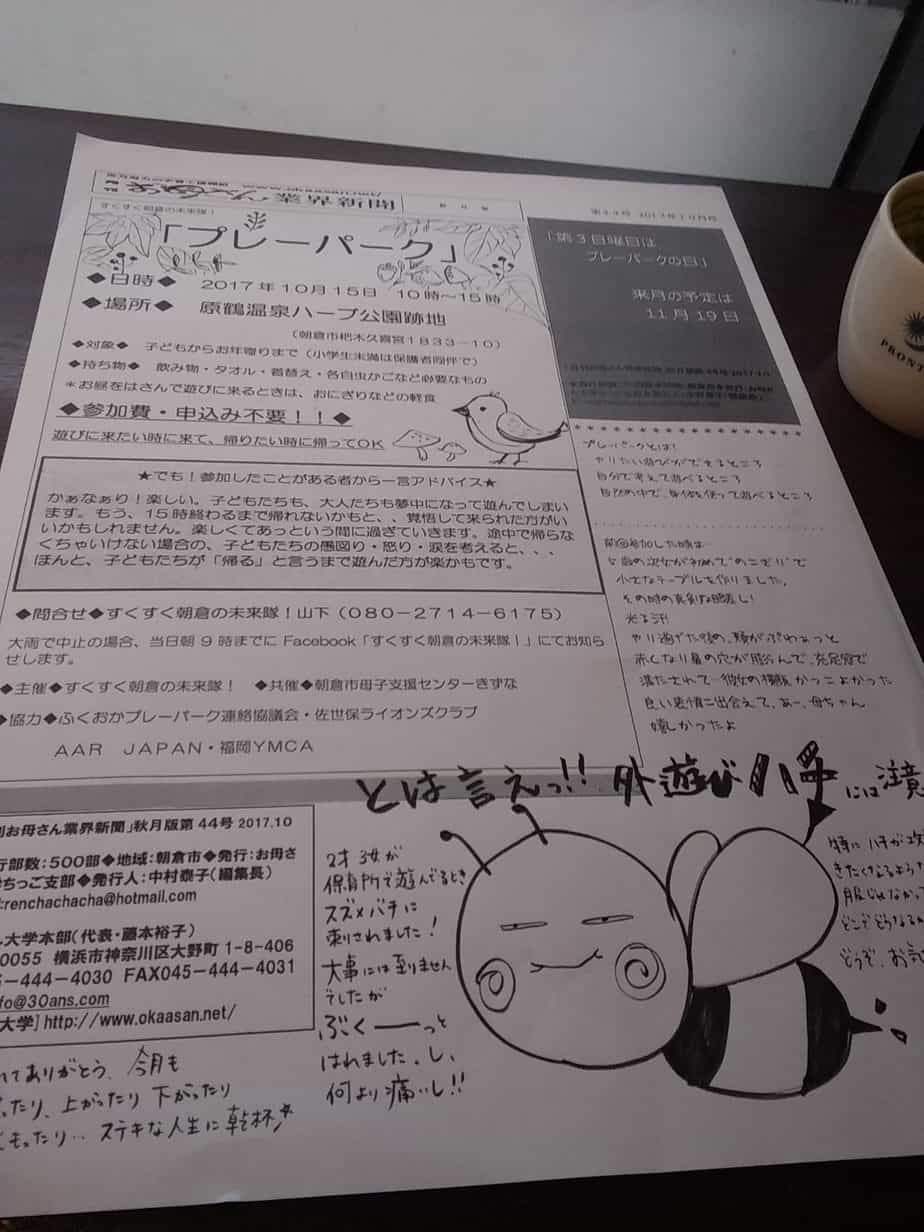 業界新聞
すくすく朝倉の未来隊!
「プレーパーク」
◆日時 2017年10月15日 10時～15時
◆場所 原鶴温泉ハーブ公園跡地
(朝倉市杷木久喜宮1833-10)
◆対象◆ 子どもからお年寄りまで(小学生未満は保護者同伴で)
◆持ち物◆ 飲み物・タオル・着替え・各自虫かごなど必要なもの
＊お昼をはさんで遊びに来るときは、おにぎりなどの軽食
◆参加費・申込み不要!!◆
遊びに来たい時に来て、帰りたい時に帰ってOK
★でも!参加したことがある者から一言アドバイス★
かぁなぁり!楽しい。子どもたちも、大人たちも夢中になって遊んでしまい
ます。もう、15時終わるまで帰れないかもと、、覚悟して来られた方がい
いかもしれません。楽しくてあっという間に過ぎていきます。途中で帰らな
くちゃいけない場合の、子どもたちの愚図り・怒り・涙を考えると、、、
ほんと、子どもたちが「帰る」と言うまで遊んだ方が楽かもです。
◆問合せ◆すくすく朝倉の未来隊!山下(080-2714-6175)
大雨で中止の場合、当日朝9時までにFacebook「すくすく朝倉の未来隊!」にてお知ら
せします。
◆主催◆すくすく朝倉の未来隊! ◆共催◆朝倉市母子支援センターきずな
◆協力◆ふくおかプレーパーク連絡協議会・佐世保ライオンズクラブ
AAR JAPAN・福岡YMCA
第44号 2017年10月号
「第3日曜日は
プレーパークの日」
来月の予定は
11月19日
プレーパークとは!
やりたい遊びができるところ
自分で考えて遊べるところ
自然の中で、身体を使って遊べるところ
前回参加した時は
5歳の次女が初めて"のこぎり"で
小さなテーブルを作りました。
その時の真剣な眼差し!
光る汗
やり遂げた後の、頬がぷわぁっと
赤くなり鼻の穴が膨らんで、充足感で
満たされて一彼女の横顔かっこよかった
良い表情に出会えて、あー、母ちゃん
嬉しかったよ
とは言えっ!! 外遊び
には注意
2才3女が
保育所で遊んでるとき
スズメバチに
刺されました!
大事には至りません
でしたが
ぶくーーっと
はれました。し、
何より痛いし!!
特にハチが攻
きたくなるよう
どこでどうなるか
どうぞ、お気
別お母さん業界新聞」秋月版第44号 2017.10
行部数:500部◆地域:朝倉市◆発行:お母さ
ちっご支部◆発行人:中村泰子(編集長)
:renchachacha@hotmail.com
大学本部(代表・藤本裕子)
0055 横浜市神奈川区大野町1-8-406
5-444-4030 FAX045-444-4031
fo@30ans.com
大学] http://www.okaasan.net/
れてありがとう、今月も
ったり、上がったり下がったり
くもったり… ステキな人生に乾杯
PRONT